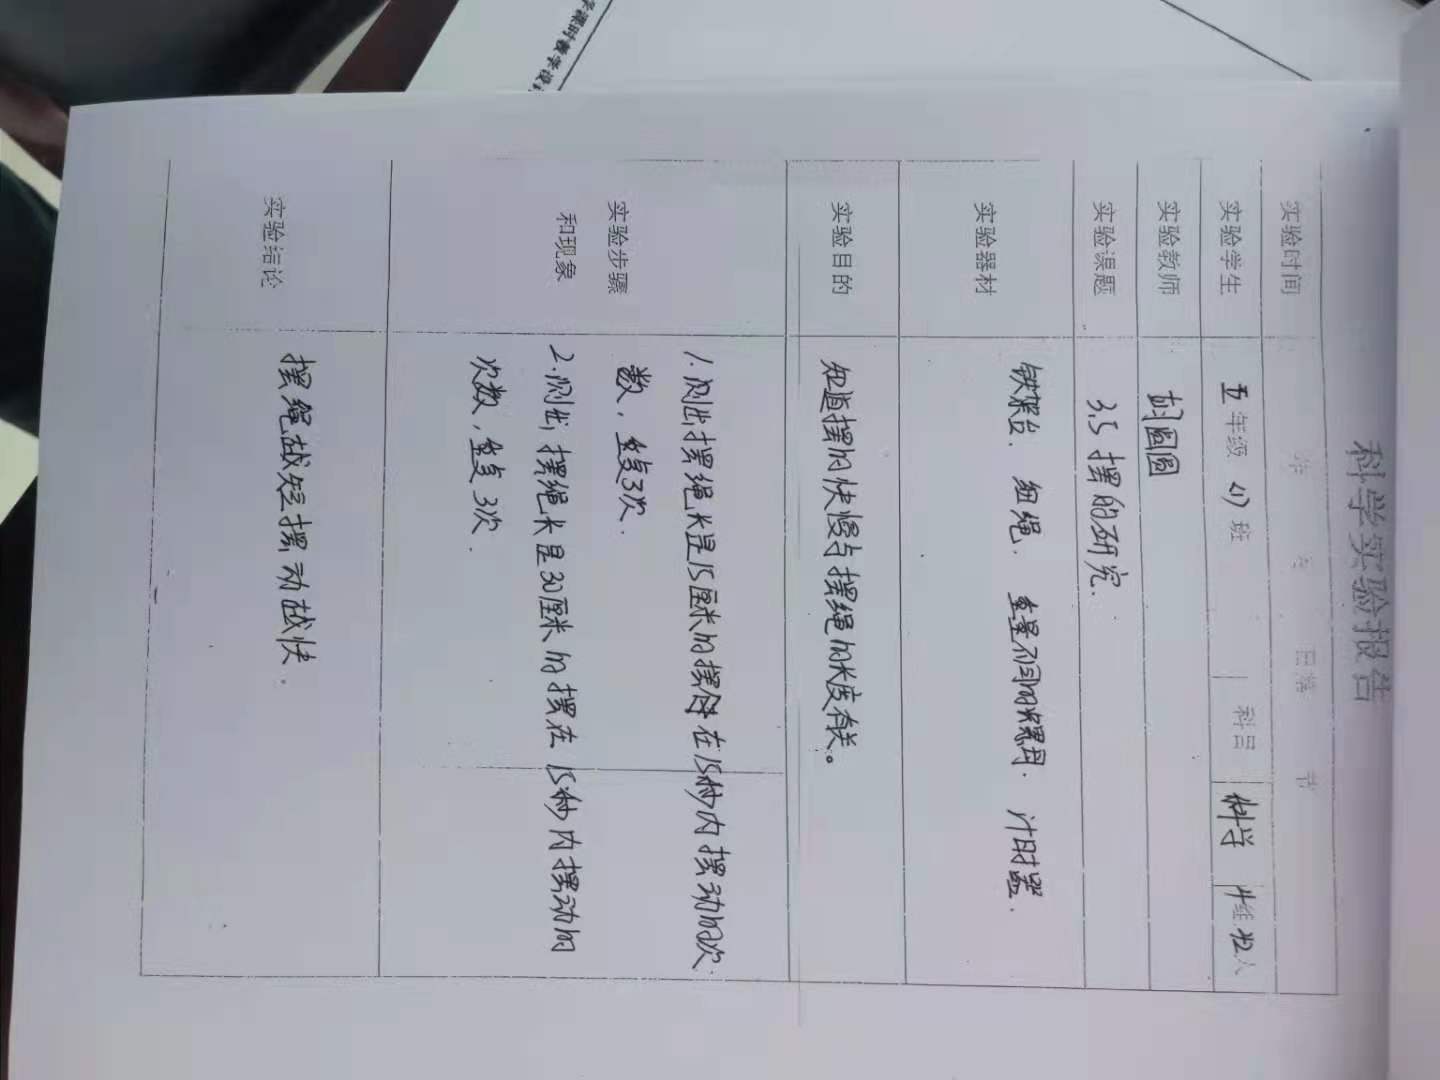 科学实验报告
实验时间 年 月 日第 节
实验学生 五年级 (1) 班 科目 科学 组 人
实验教师 圆圆
实验课题 3.5 摆的研究.
实验器材 铁架台. 细绳. 重量不同的螺母. 计时器.
实验目的 知道摆的快慢与摆绳的长度有关。
实验步骤
和现象
1.测出摆绳长是15厘米的摆 在15秒内摆动的次
数, 重复3次.
2.测出摆绳长是30厘米的摆在15秒内摆动的
次数, 重复3次.
实验结论 摆绳越短摆动越快.